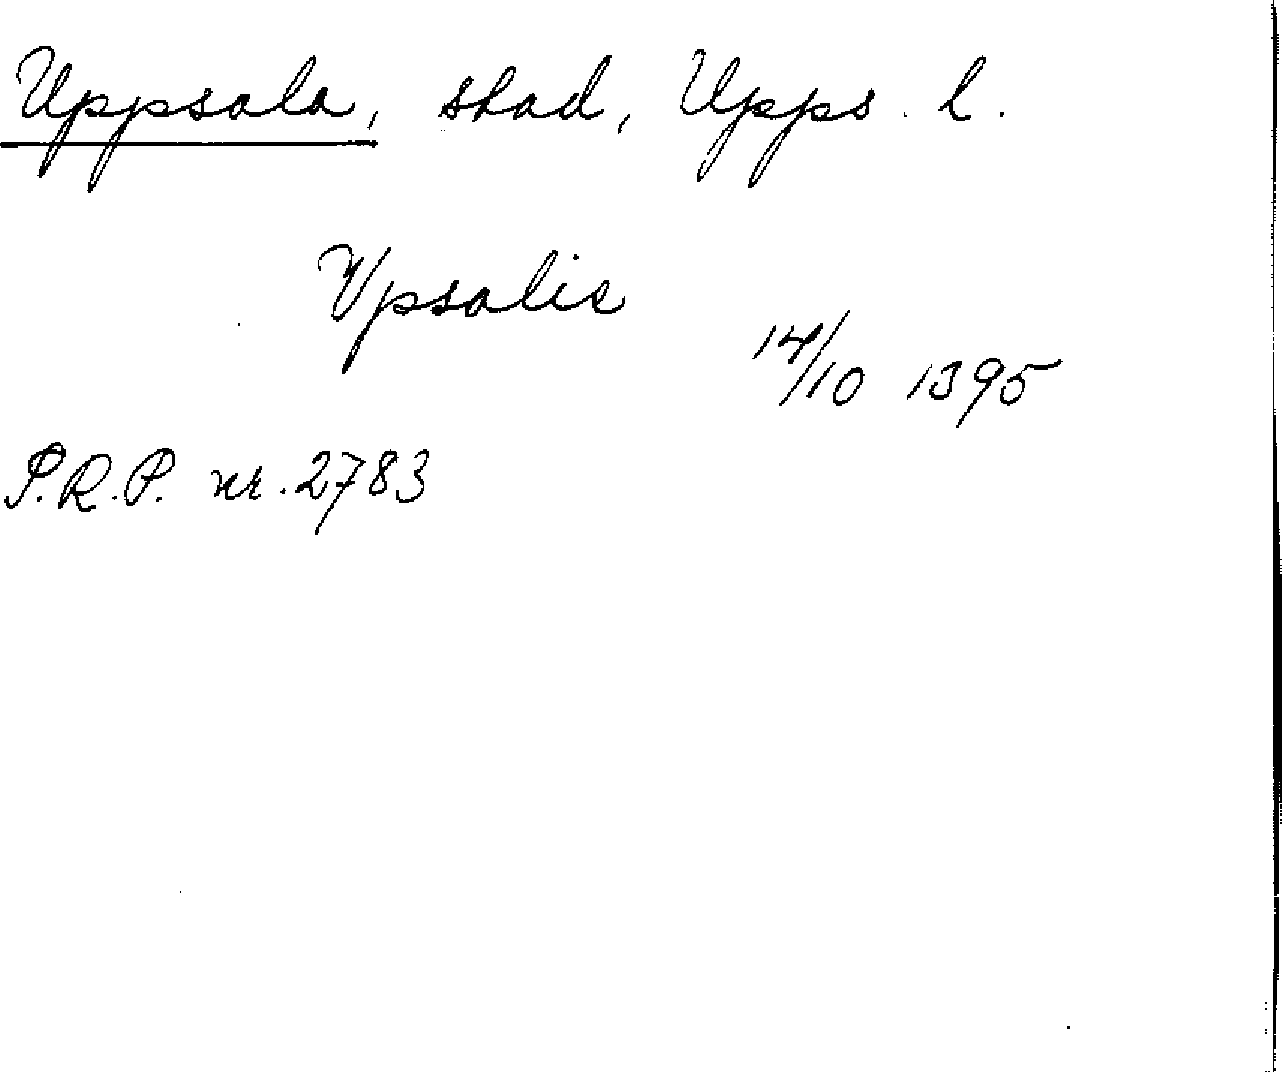 Uppsala, stad, Upps. l.
Vpsalie
14/10 1395
P.R.P. nr. 2783